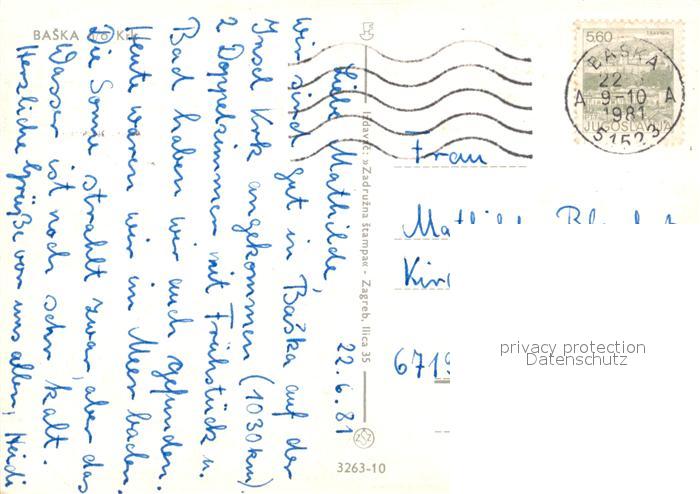 BAŠKA n/o Krk
Liebe Mathilde, 22.6.81
wir sind gut in Baška auf der
Insel Krk angekommen (1030 km).
2 Doppelzimmer mit Frühstück u.
Bad haben wir auch gefunden.
Heute waren wir im Meer baden.
Die Sonne strahlt zwar, aber das
Wasser ist noch sehr kalt.
Herzliche Grüße von uns allen, Heidi
Izdavač: »Zadružna štampa« - Zagreb, Ilica 35
3263-10
5,60
JUGOSLAVIJA
BAŠKA
22
A 9-10 A
1981
51523
Frau
privacy protection
Datenschutz